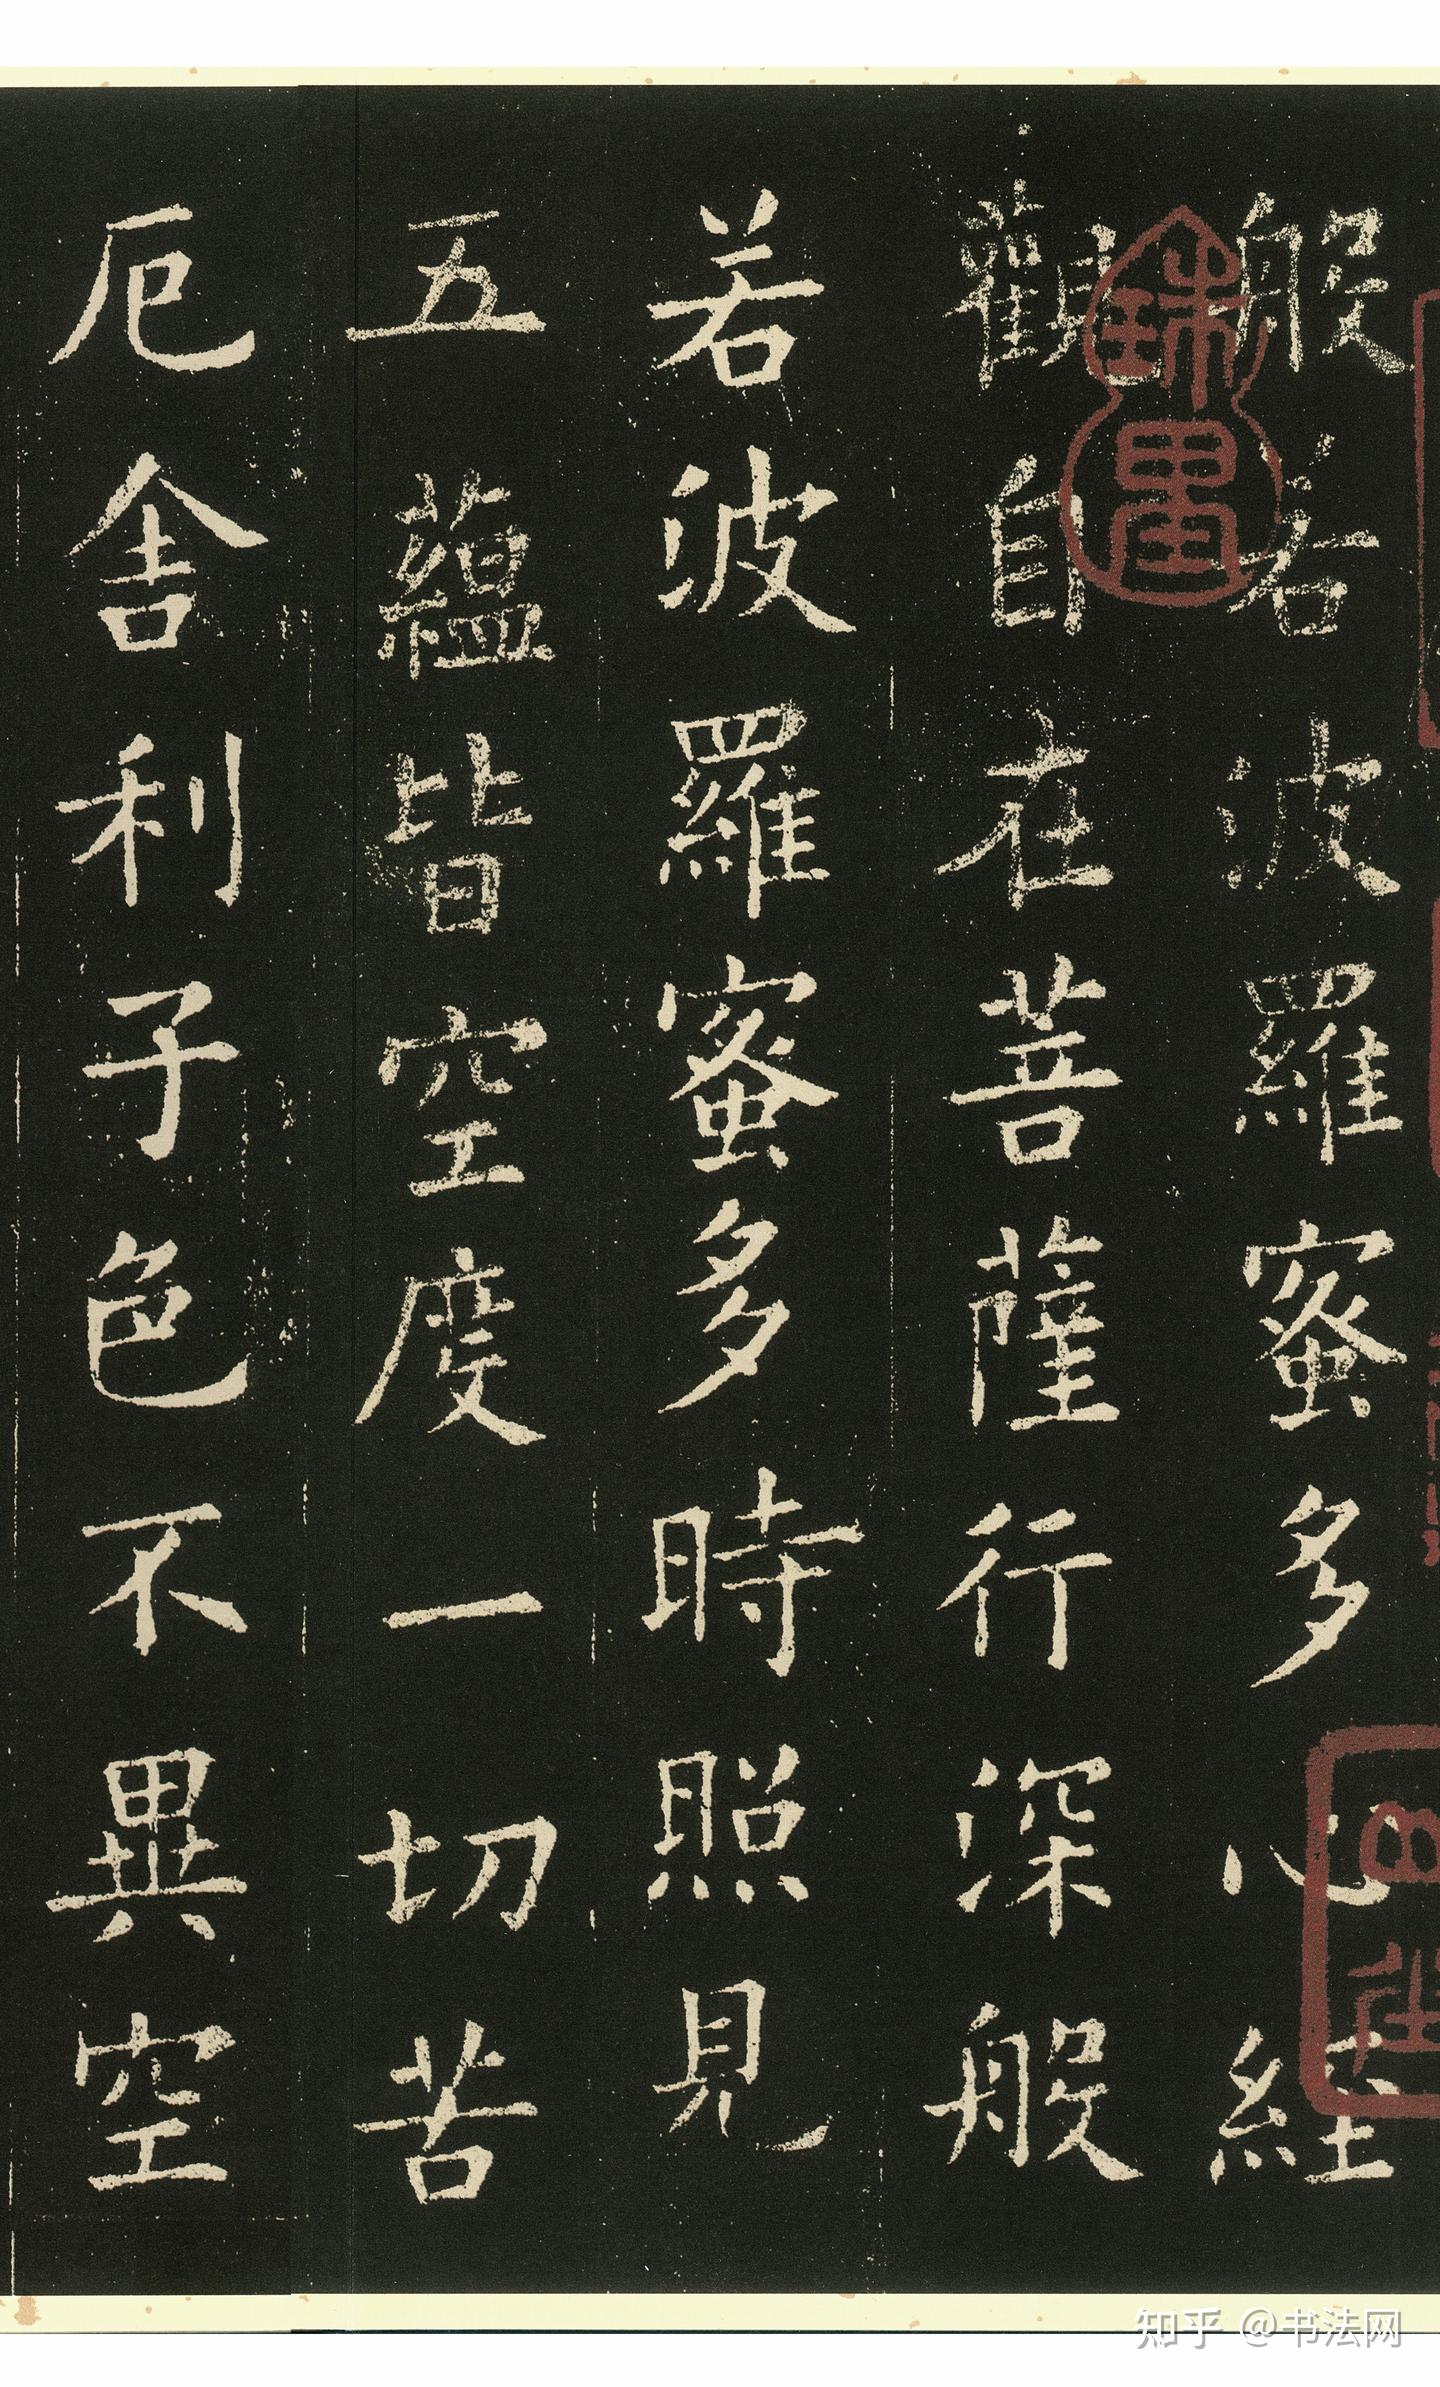 般若波羅蜜多心經
觀自在菩薩行深般
若波羅蜜多時照見
五蘊皆空度一切苦
厄舍利子色不異空
知乎 @书法网